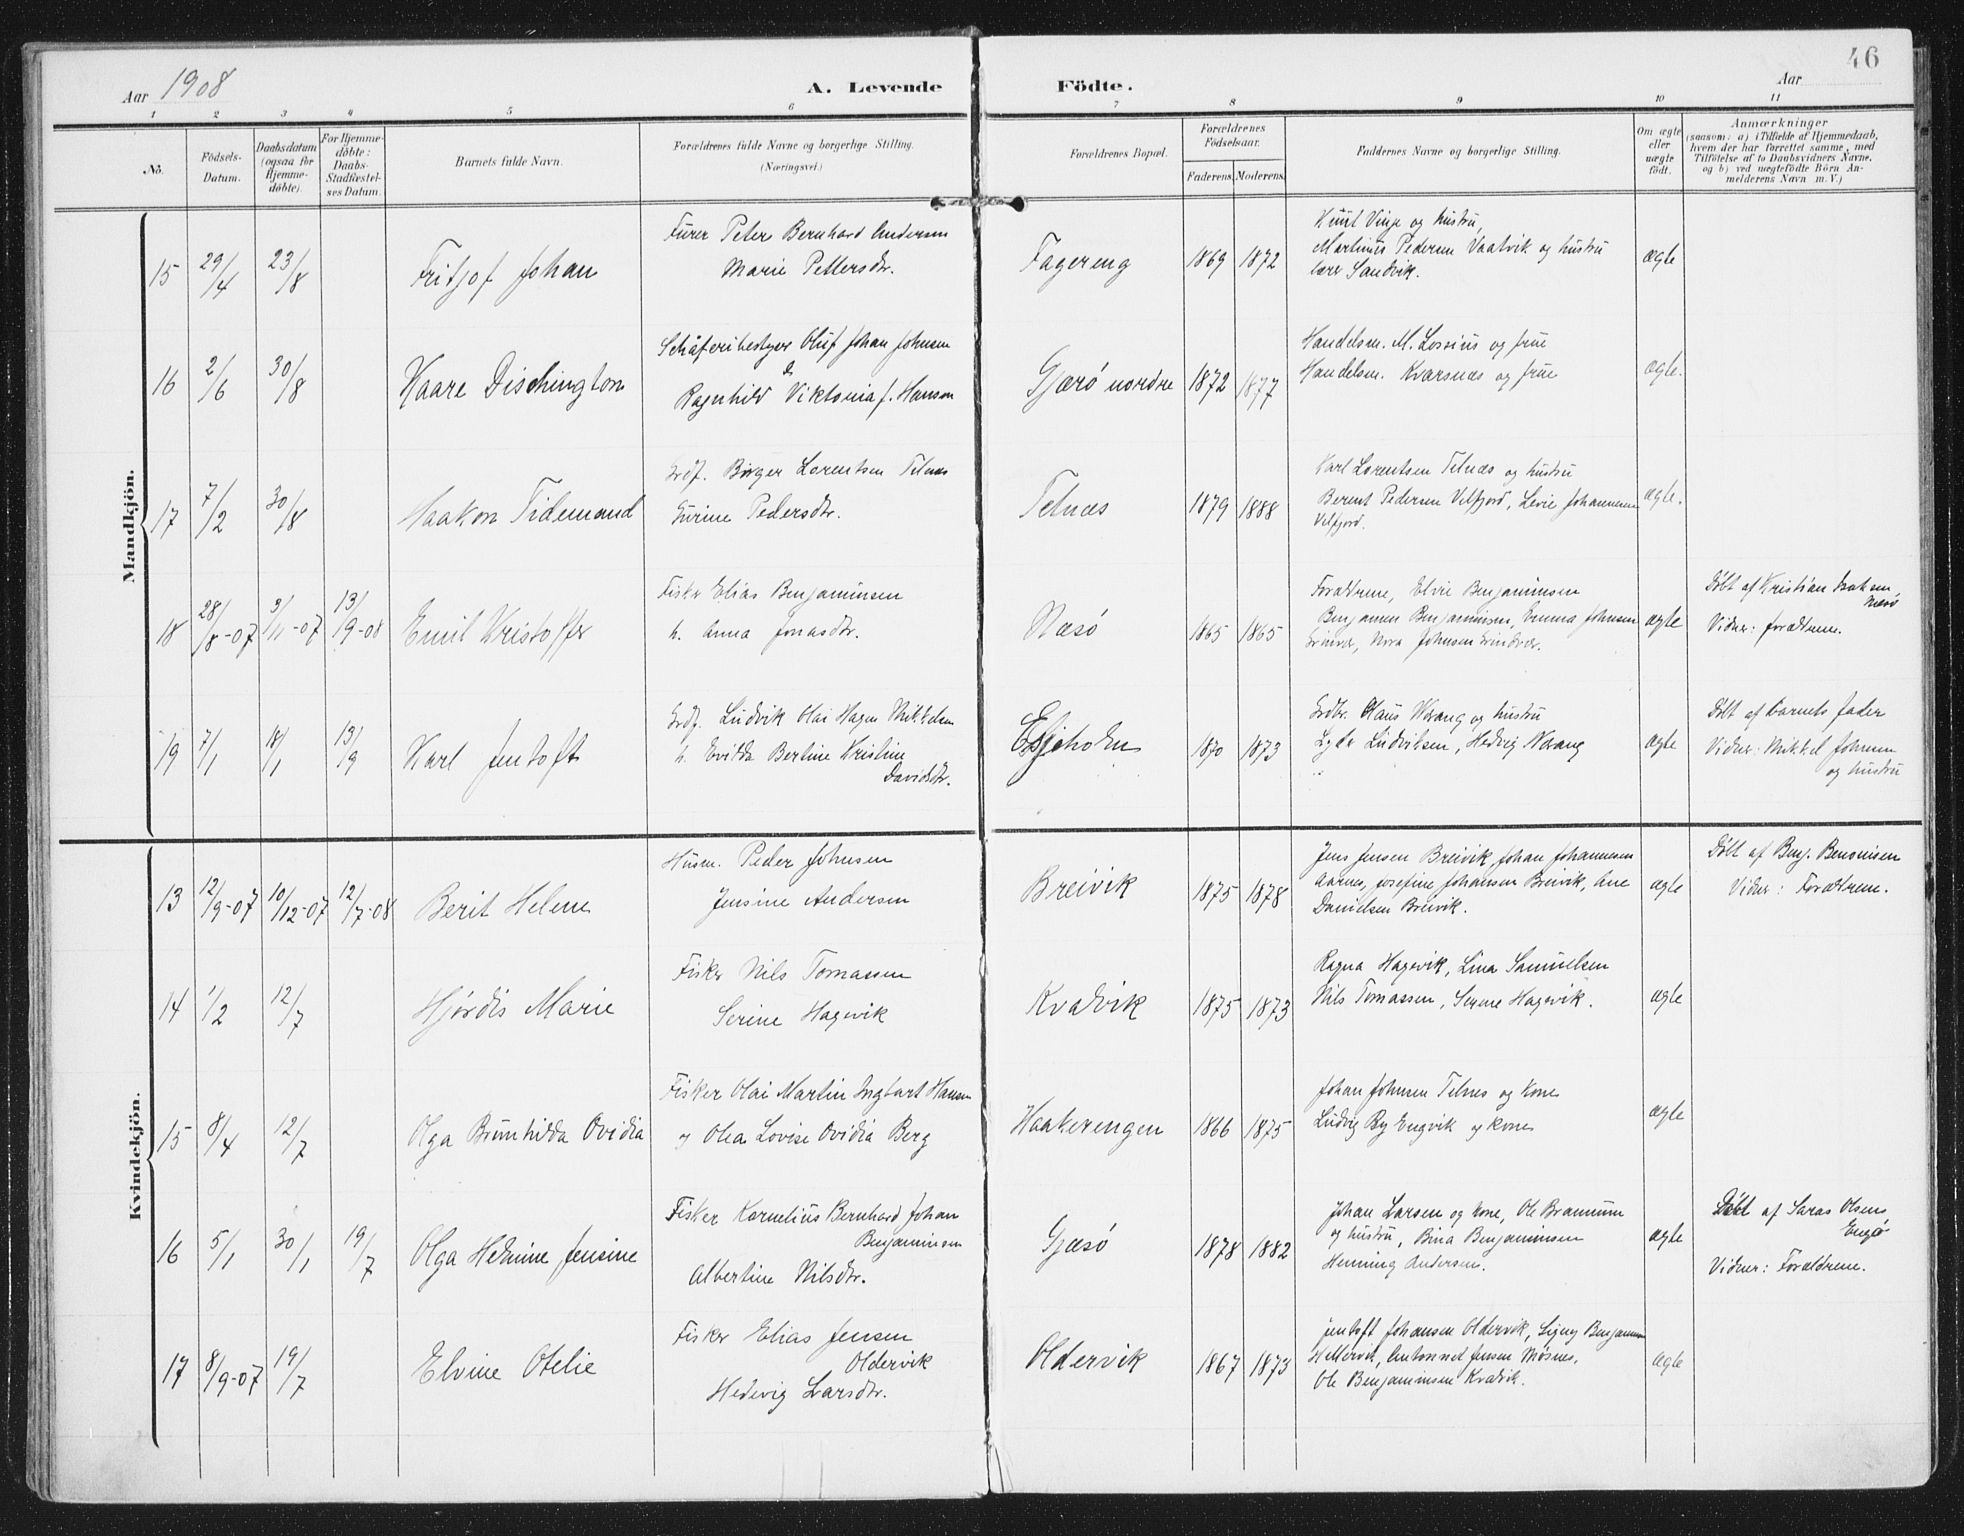 46
Aar 1908
A. Levende Födte.
Aar
1 2 3 4 5 6 7 8 9 10 11
No.
Födsels-Datum.
Daabsdatum (ogsaa for Hjemme-döbte).
For Hjemme-döbte: Daabs-Stadfæstel-ses Datum.
Barnets fulde Navn.
Forældrenes fulde Navne og borgerlige Stilling.
(Næringsvei.)
Forældrenes Bopæl.
Forældrenes Födselsaar.
Faderens. Moderens.
Faddernes Navne og borgerlige Stilling.
Om ægte eller uægte födt.
Anmærkninger
(saasom: a) i Tilfælde af Hjemmedaab,
hvem der har forrettet samme, med
Tilföielse af to Daabsvidners Navne,
og b) ved uægtefödte Börn An-
melderens Navn m. V.)
Mandkjön.
15 29/4 23/8 Fritjof Johan
Furer Peter Bernhard Andersen
Marie Pettersdtr.
Fagereng 1869 1872
Knut Vinje og hustru,
Martinus Pedersen Vaatvik og hustru
lærer Sandvik.
ægte
16 2/6 30/8 Kaare Dischington
Schäferibestyrer Oluf Johan Johnsen
&
Ragnhild Viktoria f. Hansen
Gjærö nordre 1872 1877
Handelsm. M. Lossius og frue
Handelsm. Kvarsnes og frue
ægte.
17 7/2 30/8 Haakon Tidemand
Grdf. Birger Lorentsen Telnes
Gurine Pedersdtr.
Telnæs 1879 1888
Karl Lorentsen Telnæs og hustru
Berent Pedersen Velfjord, Levie Johannesen
Velfjord.
ægte.
18 28/8-07 3/11-07 13/9-08 Emil Kristoffer
Fisker Elias Benjaminsen
h. Anna Jonasdtr.
Næsö 1865 1865
Forældrene, Elvie Benjaminsen
Benjamin Benjaminsen, Emma Johnsen
Grindvær, Nora Johnsen Grindvær.
ægte
Döbt af Kristian Isaksen,
Næsö
Vidner: forældrene.
19 7/1 18/1 13/9 Karl Jentoft
Grdf. Ludvik Olai Hagen Mikkelsen
h. Evilda Bertine Kristine
Davidsdtr.
Esjeholm 1870 1873
Grdbr. Claus Norang og hustru
Lyder Ludviksen, Hedvig Norang
ægte
Döbt af Barnets fader
Vidner: Mikkel Johnsen
og hustru
Kvindekjön.
13 12/9-07 10/12-07 12/7-08 Berit Helene
Husm. Peder Johnsen
Jensine Andersen
Breivik 1875 1878
Jens Jensen Breivik, Johan Johannesen
Aarnes, Josefine Johansen Breivik, Ane
Danielsen Breivik.
ægte
Döbt af Benj. Benonisen
Vidner: Forældrene.
14 1/2 12/7 Hjördis Marie
Fisker Nils Tomassen
Serine Hagevik
Kvalvik 1875 1873
Ragna Hagevik, Lina Samuelsen
Nils Tomassen, Serine Hagevik.
ægte
15 8/4 12/7 Olga Brunhilda Ovidia
Fisker Olai Martin Ingbart Hansen
og Olea Lovise Ovidia Berg
Haakerengen 1866 1875
Johan Johnsen Telnes og kone
Ludvig By Engvik og kone
ægte
16 5/1 30/1 19/7 Olga Hedvine Jensine
Fisker Kornelius Bernhard Johan
Benjaminsen
Albertine Nilsdtr.
Gjæsö 1878 1882
Johan Larsen og kone, Ole Brannum
og hustru, Bina Benjaminsen
Henning Andersen.
ægte
Döbt af Saras Olsens
Engö
Vidner: Forældrene.
17 8/9-07 19/7 Elvine Otelie
Fisker Elias Jensen
Oldervik
Hedevig Larsdtr.
Oldervik 1867 1873
Jentoft Johansen Oldervik, Signy Benjaminsen
Hellervik, Antonnet Jensen Mösnes,
Ole Benjaminsen Kvalvik.
ægte